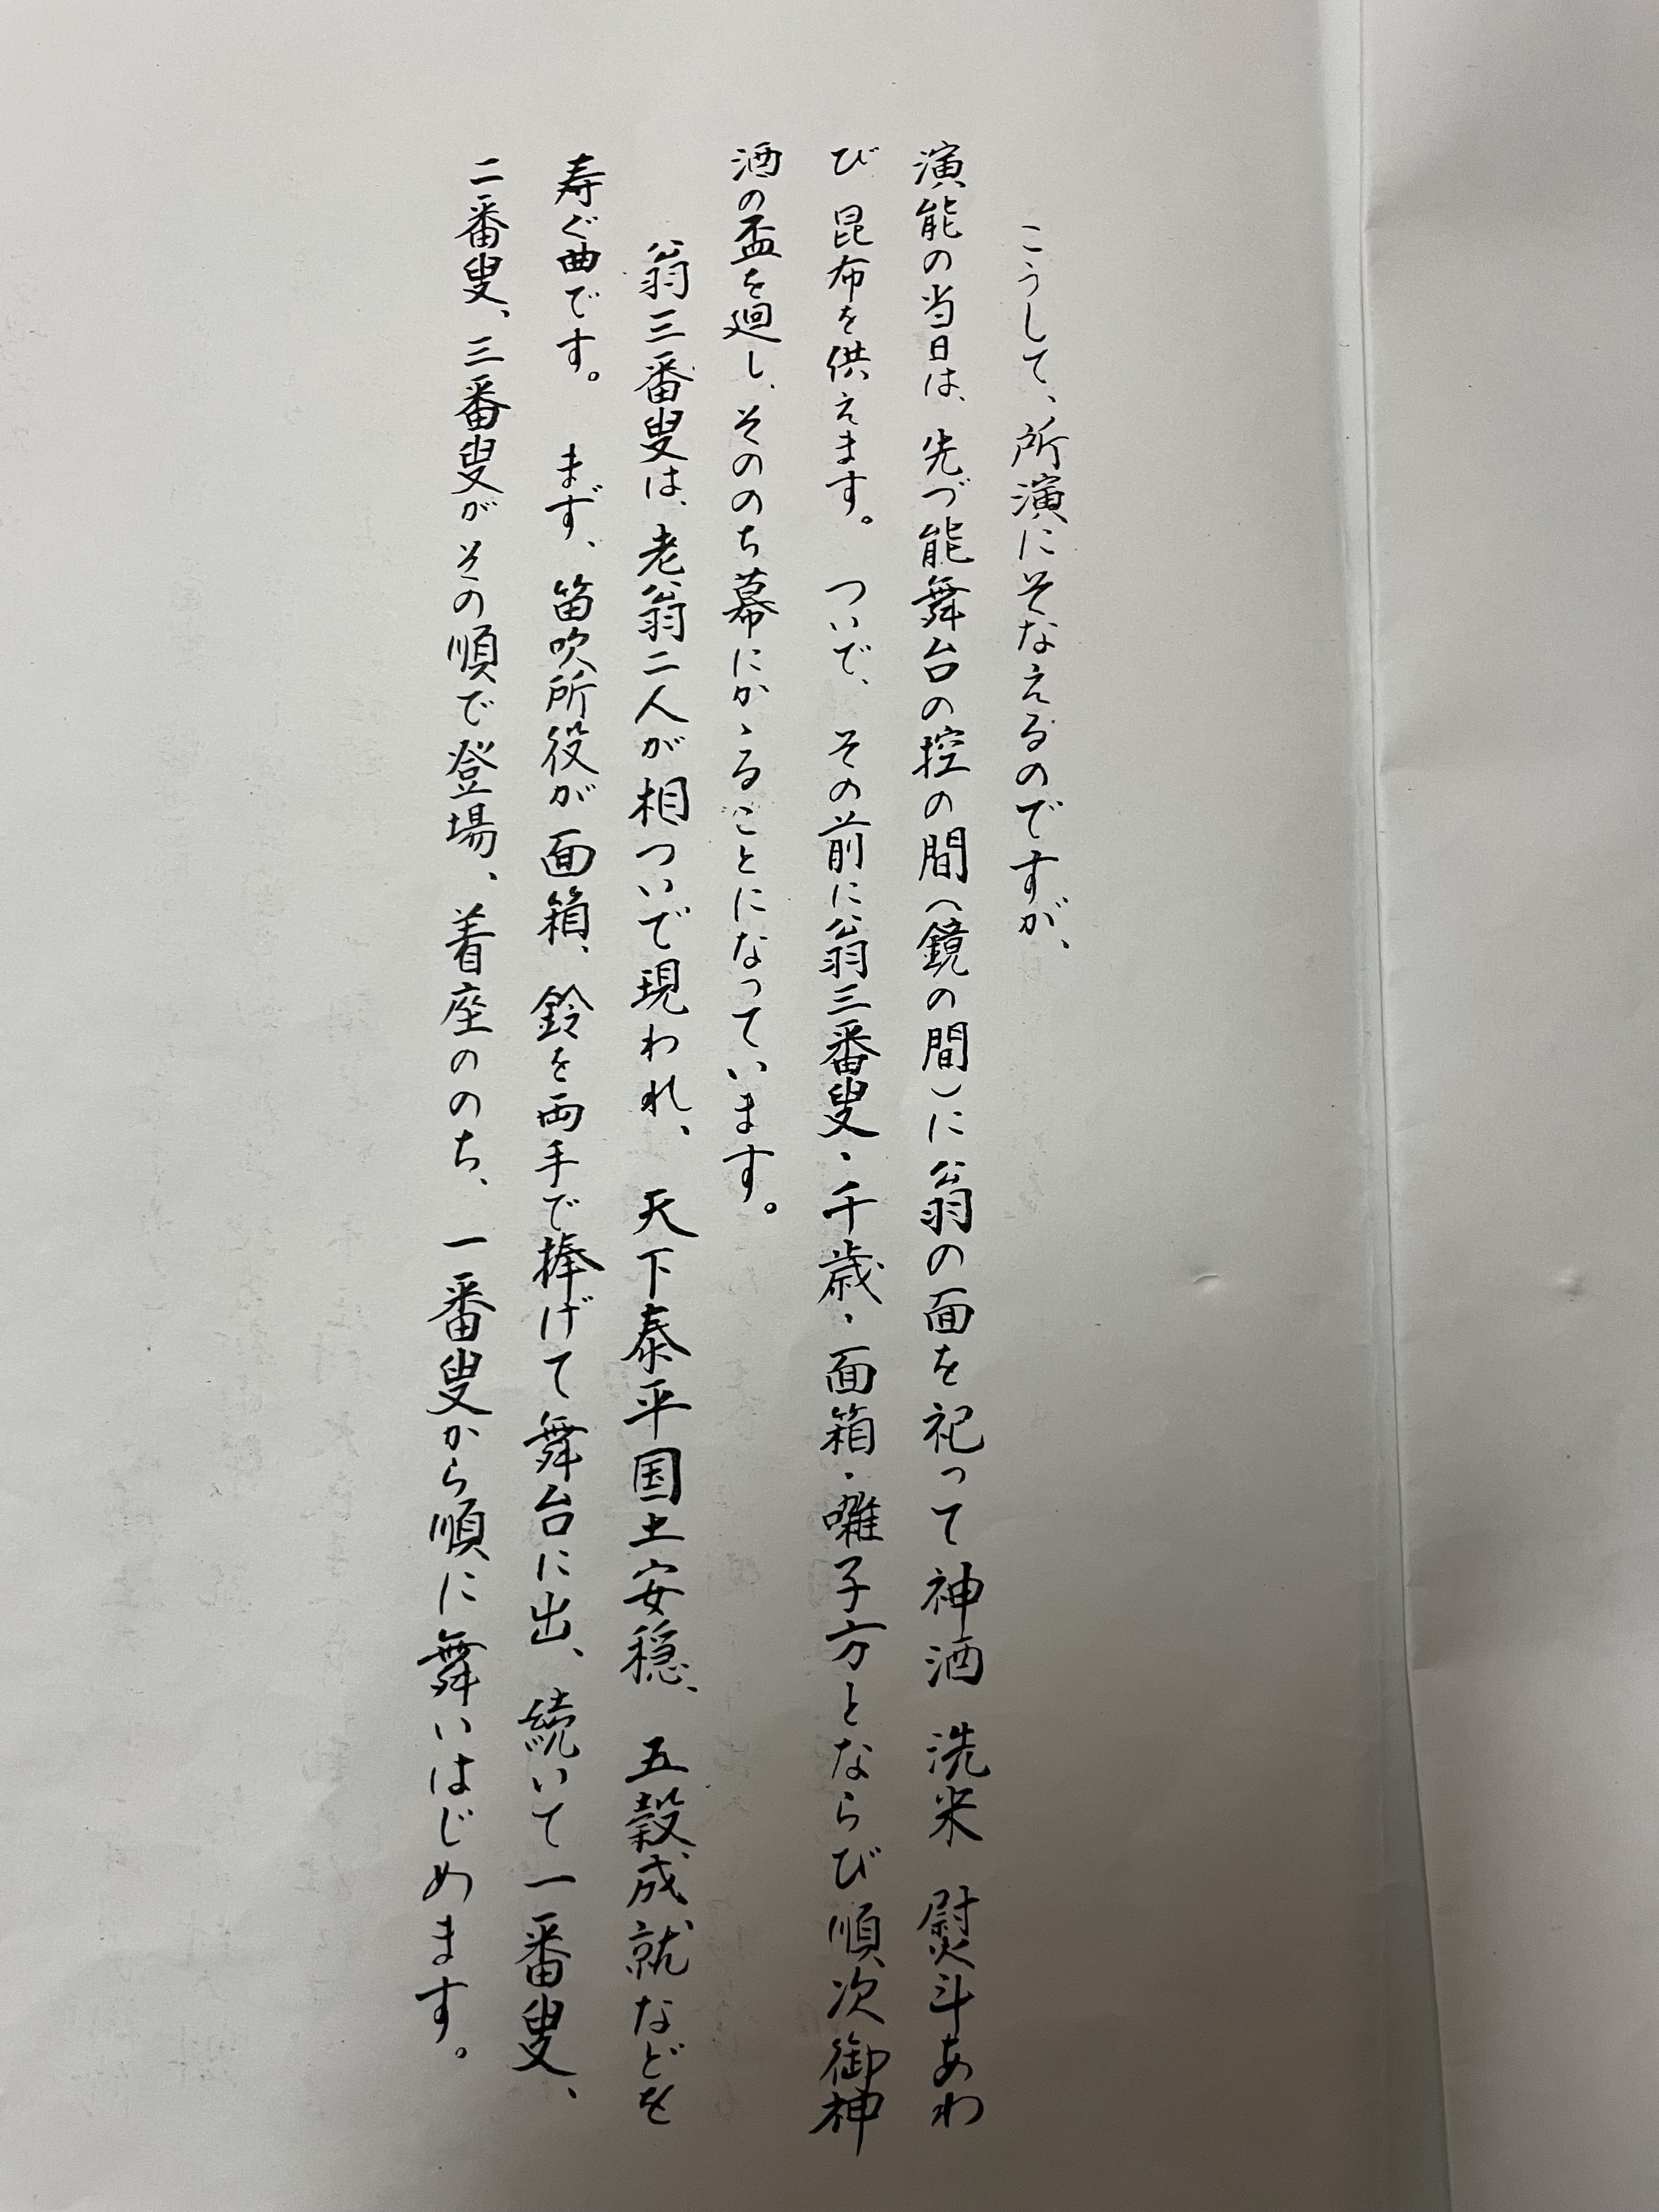 こうして、所演にそなえるのですが、
演能の当日は、先づ能舞台の控の間(鏡の間)に翁の面を祀って神酒 洗米 熨斗あわ
び 昆布を供えます。 ついで、その前に翁三番叟・千歳・面箱・囃子方とならび順次御神
酒の盃を廻し、そののち幕にかゝることになっています。
翁三番叟は、老翁二人が相ついで現われ、 天下泰平国土安穏、 五穀成就などを
寿ぐ曲です。 まず、笛吹所役が面箱、鈴を両手で捧げて舞台に出、 続いて一番叟、
二番叟、三番叟がその順で登場、着座ののち、 一番叟から順に舞いはじめます。